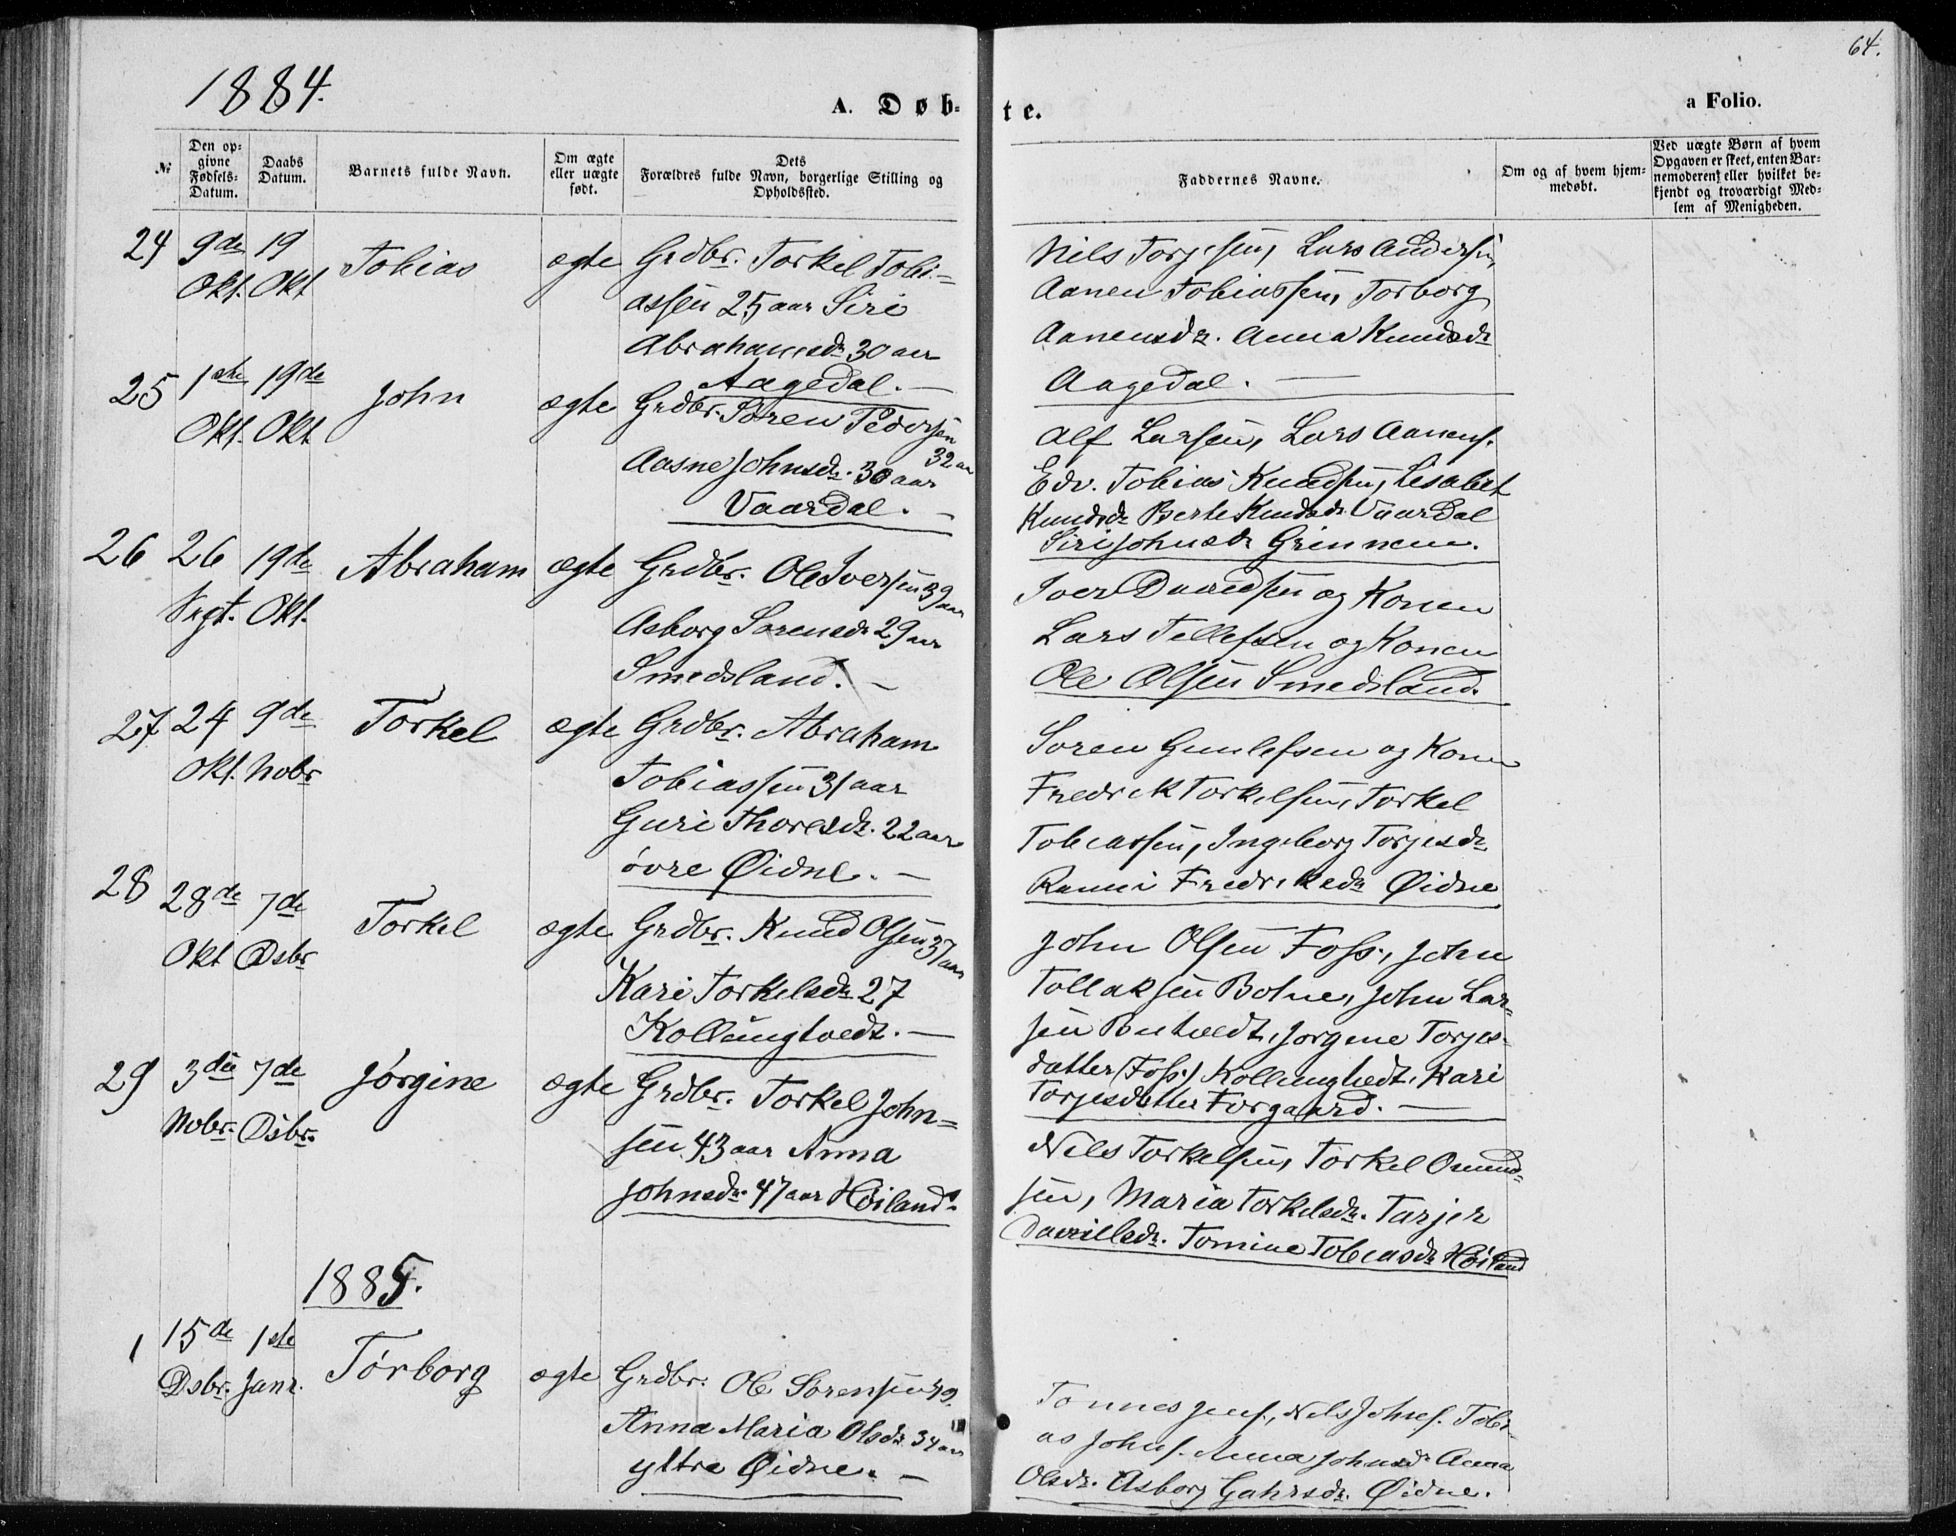 1884.
64.
A. Døb-
te.
a Folio.
№
Den op-
givne
Fødsels-
Datum.
Daabs
Datum.
Barnets fulde Navn.
Om ægte
eller uægte
født.
Dets
Forældres fulde Navn, borgerlige Stilling og
Opholdssted.
Faddernes Navne.
Om og af hvem hjem-
medøbt.
Ved uægte Børn af hvem
Opgaven er skeet, enten Bar-
nemoderens eller hvilket be-
kjendt og troværdigt Med-
lem af Menigheden.
24 9de 19 Tobias ægte Grdbr. Torkel Tobi-
Okt. Okt assen 25 aar Siri
Abrahamsdr 30 aar
Aagedal. —
Nils Torjesen, Lars Andersen,
Aanen Tobiassen, Torborg
Aanensdr. Anna Knudsdr
Aagedal. —
25 1ste 19de John ægte Grdbr. Søren Pedersen
Okt. Okt 32 aar
Aasne Johnsdr. 30 aar
Vaardal. —
Alf Larsen, Lars Aanens.
Edv. Tobias Knudsen, Lisabet
Knudsdr Berte Knudsdr Vaardal
Siri Johnsdr Grinnem.
26 26 19de Abraham ægte Grdbr. Ole Iversen 39 aar
Sept. Okt. Asborg Sørensdr 29 aar
Smedsland. —
Iver Davidsen og Konen
Lars Tellefsen og Konen
Ole Olsen Smedsland.
27 24 9de Torkel ægte Grdbr. Abraham
Okt. Nobr Tobiassen 31 aar
Guri Thoresdr. 22 aar
øvre Øidne. —
Søren Gunlefsen og Kone
Fredrik Torkelsen, Torkel
Tobiassen, Ingeborg Torjesdr
Ranni Fredriksdr Øidne
28 28de 7de Torkel ægte Grdbr. Knud Olsen 37 aar
Okt Dsbr Kari Torkelsdr 27
Kollungtvedt. —
John Olsen Foss., John
Tollaksen Bohne, John Lar-
sen, Jørgine Torjes-
datter (Foss.) Kollungtvedt, Kari
Torjesdatter Forgaard. —
29 3die 7de Jørgine ægte Grdbr. Torkel John-
Nobr. Dsbr. sen 43 aar Anna
Johnsdr. 47 aar Høiland.
Nils Torkelsen, Torkel Omund-
sen, Maria Torkelsdr. Tarjer
Tomine Tobiasdr Høiland
1885.
1 15de 1ste Torborg ægte Grdbr. Ole Sørensen 49
Dsbr. Janr. Anna Maria Olsdr 34 aar
yttre Øidne. —
Tønnes Jens., Nils Johns. Tobi-
as Johns. Anna Johnsdr Anna
Olsdr. Asborg Gahrsdr. Øidne.